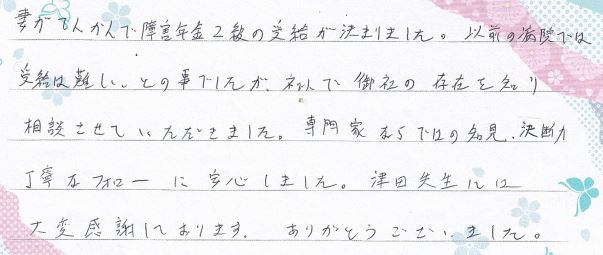 妻がてんかんで障害年金2級の受給が決まりました。以前の病院では
受給は難しいとの事でしたが、ネットで御社の存在を知り
相談させていただきました。専門家ならではの知見、決断力
丁寧なフォローに安心しました。津田先生には
大変感謝しております。ありがとうございました。